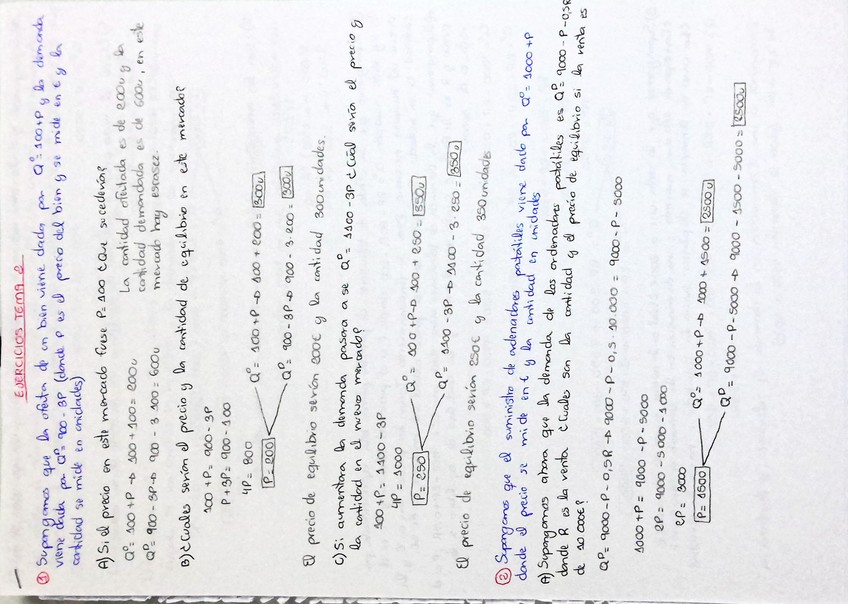 EJERCICIOS TEMA 2
① Supongamos que la oferta de un bien viene dada por Qº = 100 + P y la demanda
viene dada por Qᴰ = 900 - 3P (donde P es el precio del bien y se mide en € y la
cantidad se mide en unidades)
A) Si el precio en este mercado fuese P=100 ¿Que sucedería?
Qº = 100 + P → 100 + 100 = 200u
Qᴰ = 900 - 3P → 900 - 3·100 = 600u
La cantidad ofertada es de 200u y la
cantidad demandada es de 600u, en este
mercado hay escasez.
B) ¿Cuales serían el precio y la cantidad de equilibrio en este mercado?
100 + P = 900 - 3P
P + 3P = 900 - 100
4P = 800
P = 200
Qº = 100 + P → 100 + 200 = 300u
Qᴰ = 900 - 3P → 900 - 3·200 = 300u
El precio de equilibrio serían 200€ y la cantidad 300 unidades.
C) Si aumentara la demanda pasara a se Qᴰ = 1100 - 3P ¿Cuál sería el precio y
la cantidad en el nuevo mercado?
100 + P = 1100 - 3P
4P = 1000
P = 250
Qº = 100 + P → 100 + 250 = 350u
Qᴰ = 1100 - 3P → 1100 - 3·250 = 350u
El precio de equilibrio serían 250€ y la cantidad 350 unidades
② Supongamos que el suministro de ordenadores portátiles viene dado por Qº = 1000 + P
donde el precio se mide en € y la cantidad en unidades
A) Supongamos ahora que la demanda de los ordenadores portátiles es Qᴰ = 9000 - P - 0,5R
donde R es la renta ¿Cuales son la cantidad y el precio de equilibrio si la renta es
de 10 000€?
Qᴰ = 9000 - P - 0,5R → 9000 - P - 0,5·10.000 = 9000 - P - 5000
1000 + P = 9000 - P - 5000
2P = 9000 - 5000 - 1000
2P = 3000
P = 1500
Qº = 1000 + P → 1000 + 1500 = 2500u
Qᴰ = 9000 - P - 5000 → 9000 - 1500 - 5000 = 2500u